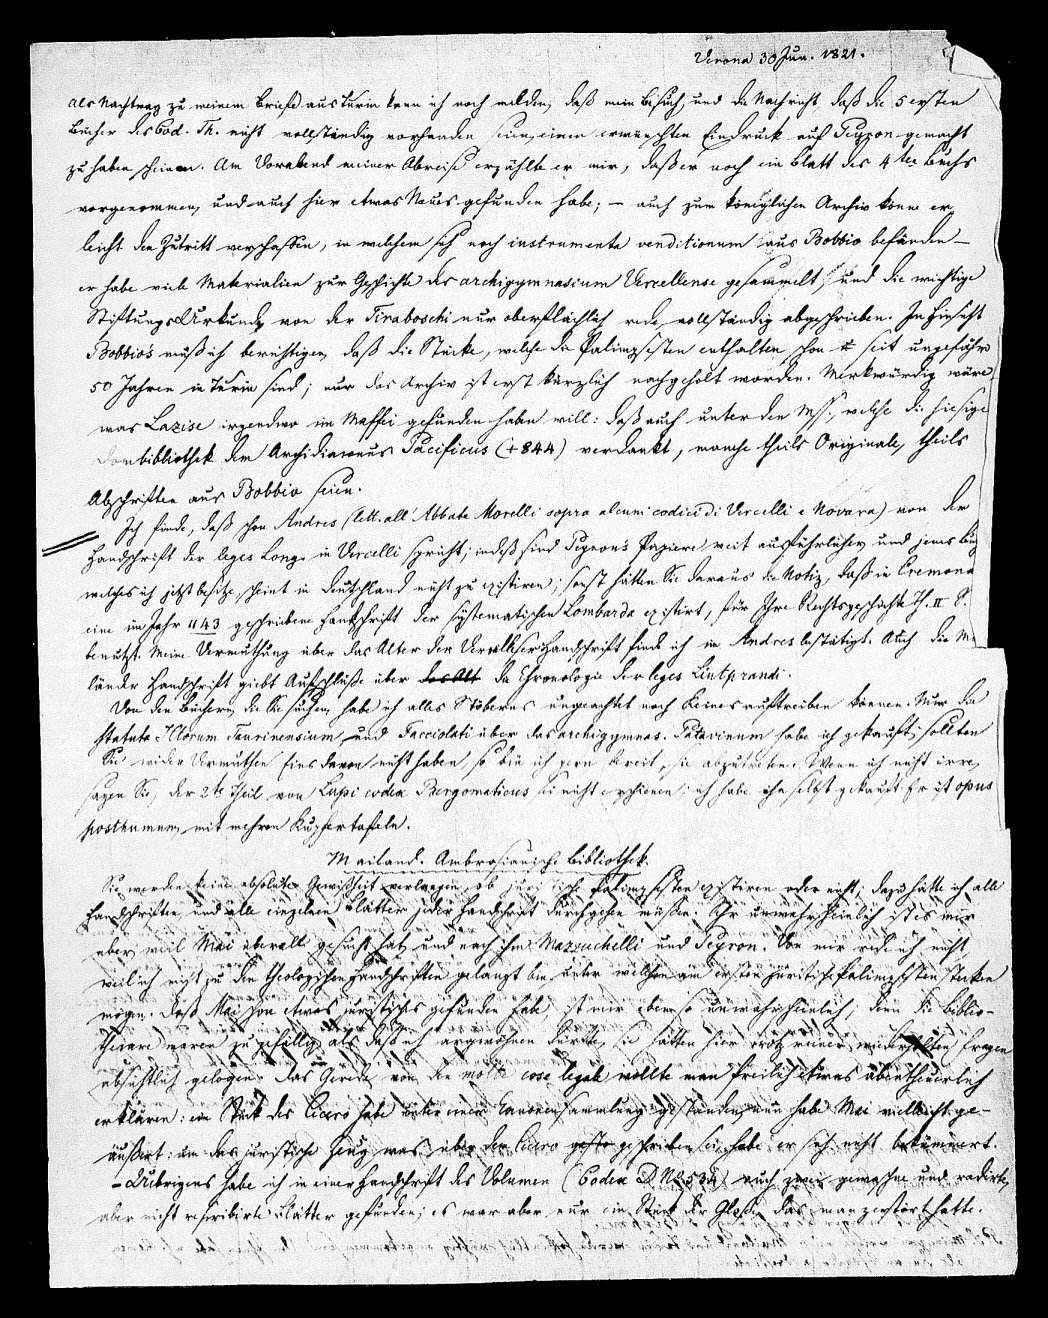 Verona 30 Jun. 1821.
Als Nachtrag zu meinem Briefe aus Turin kann ich noch melden, daß mein Besuch, und die Nachricht, daß die 5 ersten
Bücher des Cod. Th. nicht vollständig vorhanden seien, einen erwünschten Eindruck auf Peyron gemacht
zu haben scheinen. Am Vorabend meiner Abreise erzählte er mir, daß er noch ein Blatt des 4ten Buchs
vorgenommen, und auch hier etwas Neues gefunden habe; – auch zum königlichen Archiv könne er
leicht den Zutritt verschaffen, in welchem sich noch instrumenta venditionum aus Bobbio befänden –
er habe viele Materialien zur Geschichte des archigymnasium Vercellense gesammelt, und die wichtige
Stiftungs Urkunde, von der Tiraboschi nur oberflächlich rede, vollständig abgeschrieben. In Hinsicht
Bobbio's muß ich berichtigen, daß die Stücke, welche die Palimpsesten enthalten schon seit ungefähr
50 Jahren in Turin sind; nur das Archiv ist erst kürzlich nachgeholt worden. Merkwürdig wäre,
was Lazise irgendwo im Maffei gefunden haben will: daß auch unter den MSS., welche die hiesige
Dombibliothek dem Archidiaconus Pacificus (+844) verdankt, manche theils Originale, theils
Abschriften aus Bobbio seien.
Ich finde, daß schon Andres (lett. all' Abbate Morelli sopra alcuni codici di Vercelli e Novara) von der
Handschrift der leges Long. in Vercelli spricht; indeß sind Peyron's Papiere weit ausführlicher und jenes
welches ich jetzt besitze, scheint in Deutschland nicht zu existiren; sonst hätten Sie daraus die Notiz, daß in Cremona
eine im Jahr 1143 geschriebene Handschrift der systematischen Lombarda existirt, für Ihre Rechtsgeschichte Th. II S.
benutzt. Meine Vermuthung über das Alter der Vercellser Handschrift finde ich im Andres bestätigt. Auch die
länder Handschrift giebt Aufschlüsse über die Chronologie der leges Liutprandi.
Von den Büchern, die Sie suchen, habe ich alles Stöberns ungeachtet noch keines auftreiben können. Nur die
statuta ICtorum Taurinensium und Facciolati über das archigymnas. Patavinum habe ich gekauft; sollten
Sie wider Vermuthen eins davon nicht haben, so bin ich gern bereit, sie abzutreten. Wenn ich nicht irre,
sagen Sie, der 2te Theil von Lupi codex Bergomaticus sei nicht erschienen; ich habe ihn selbst gekauft. Er ist opus
posthumum, mit mehren Kupfertafeln.
Mailand. Ambrosianische Bibliothek.
Sie werden keine absolute Gewißheit verlangen, ob juristische Palimpsesten existiren oder nicht; dazu hätte ich alle
Handschriften und alle einzelnen Blätter jeder Handschrift durchgehen müssen. Ihr unwahrscheinlich ist es mir
aber weil Mai überall gesucht hat, und nach ihm Mazzuchelli und Peyron. Von mir rede ich nicht,
weil ich nicht zu den theologischen Handschriften gelangt bin, unter welchen am ersten juristische Palimpsesten stecken
mögen. Daß Mai schon etwas juristisches gefunden habe, ist mir ebenso unwahrscheinlich; denn die Biblio-
thecare waren zu gefällig, als daß ich argwöhnen dürfte, sie hätten hier trotz meiner wiederholten Fragen
absichtlich gelogen. Das Gerede von den molte cose legali wollte man freilich etwas abentheuerlich
erklären: ein Stück des Cicero habe unter einer Canonensammlung gestanden, nun habe Mai vielleicht ge-
äußert: um das juristische Zeug was über den Cicero geschrieben sei, habe er sich nicht bekümmert.
– Übrigens habe ich in einer Handschrift des Volumen (Codex D. No 533) auch zwei gewaschne und radirte,
aber nicht rescribirte Blätter gefunden; es war aber nur ein Stück der Glosse, das man zerstört hatte.